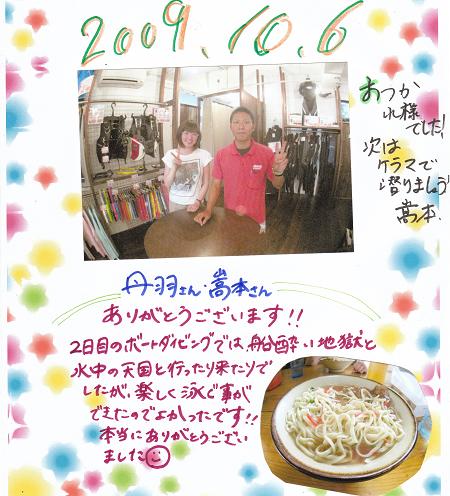 2009.10.6
おつか
れ様
でした!
次は
ケラマで
潜りましょう
嵩本.
丹羽さん・嵩本さん
ありがとうございます!!
2日目のボートダイビングでは、船酔い地獄と
水中の天国と行ったり来たりで
したが、楽しく泳ぐ事が
できたのでよかったです!!
本当にありがとうござい
ました